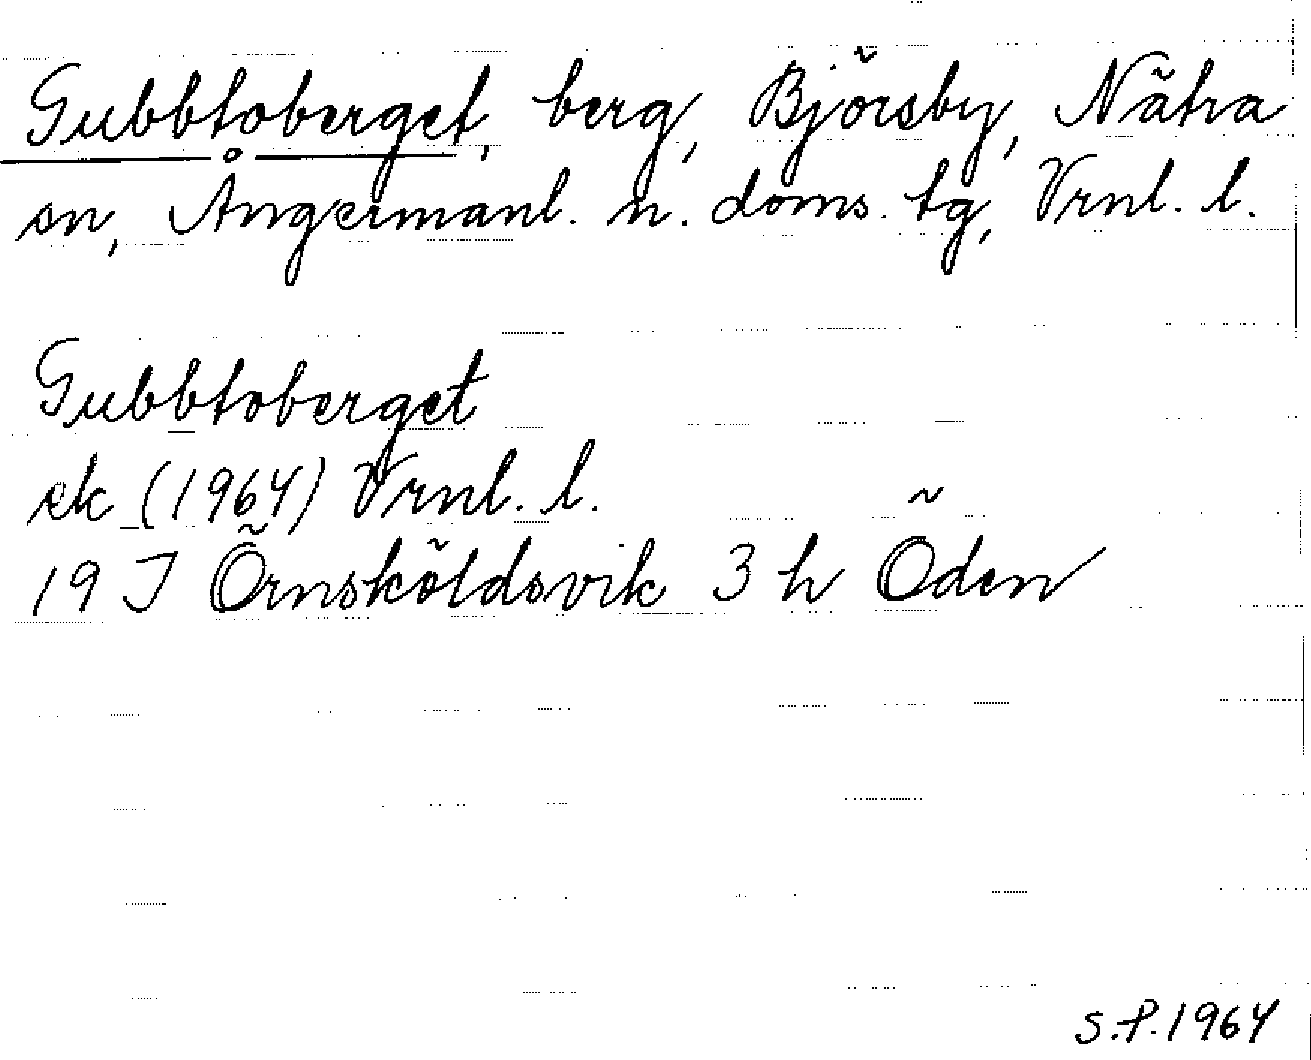 Gubbtoberget, berg, Björsby, Nätra
sn, Ångermanl. n. doms. tg, Vrnl. l.
Gubbtoberget
ek (1964) Vrnl. l.
19 J Örnsköldsvik 3 h Öden
S.P. 1964